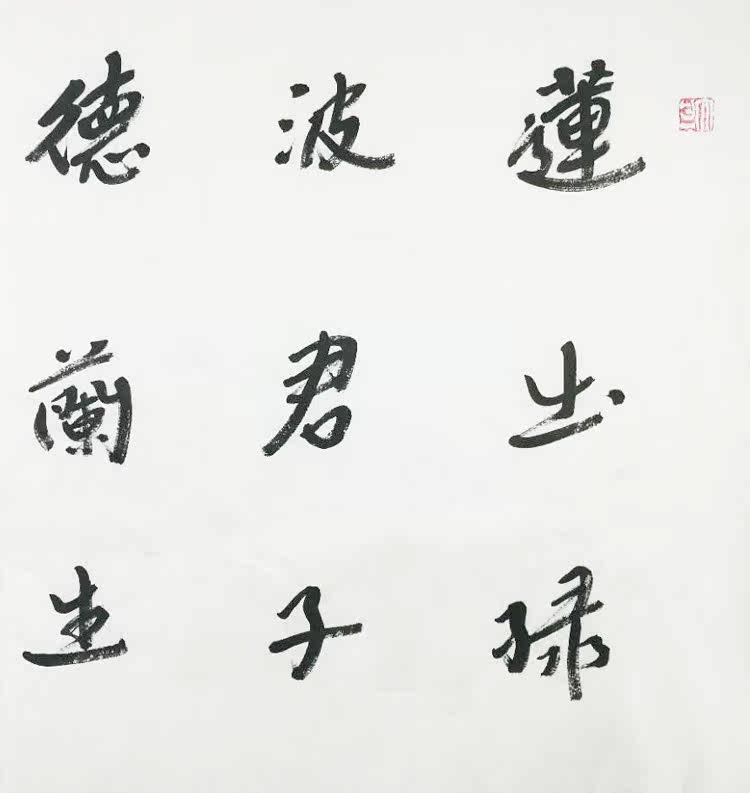 蓮出緑
波君子
德蘭生